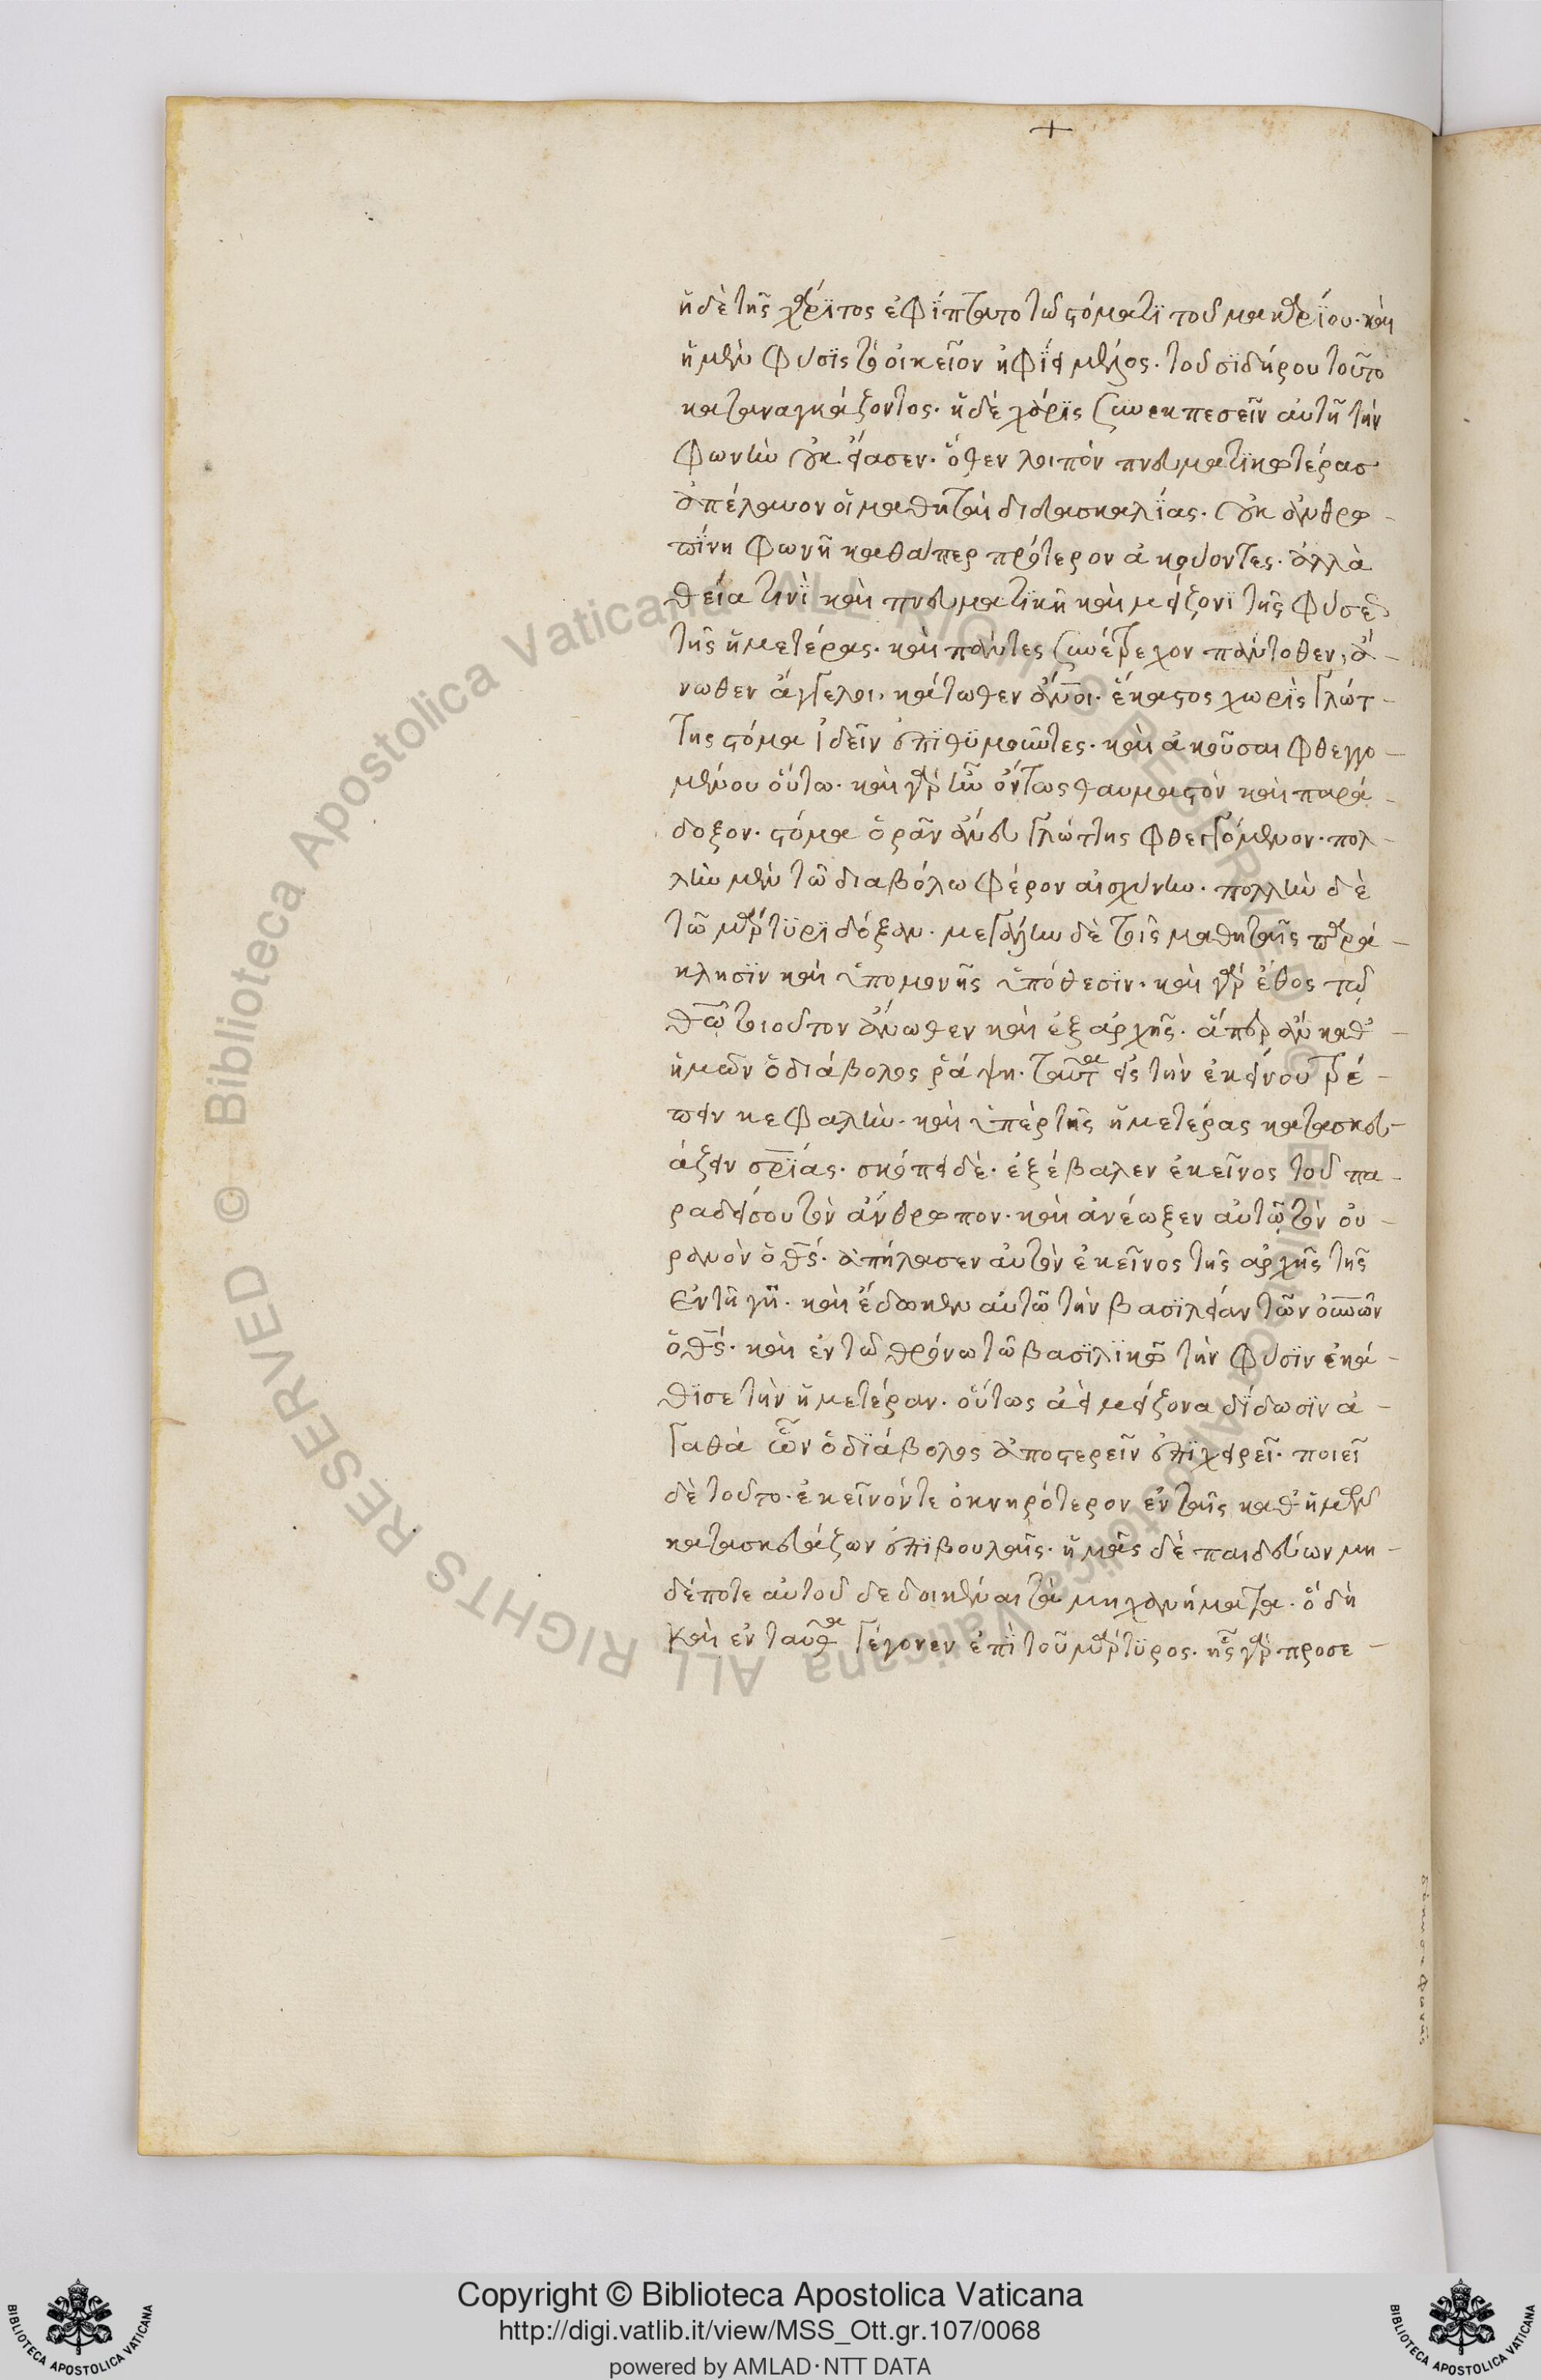 +
ἡ δὲ τῆς χάριτος ἐφίπτατο τῶ στόματι τοῦ μακαρίου· καὶ
ἡ μὲν φύσις τὸ οἰκεῖον ἠφίει μέλος· τοῦ σιδήρου τοῦτο
καταναγκάζοντος· ἡ δὲ χάρις συνεκπεσεῖν αὐτῆ τὴν
φωνὴν οὐκ εἴασεν· ὅθεν λοιπὸν πνευματικωτέρασ
ἀπέλαυον οἱ μαθηταὶ διδασκαλίας· οὐκ ἀνθρω-
πίνη φωνῆ καθάπερ πρότερον ἀκούοντες· ἀλλὰ
θεία τινὶ καὶ πνευματικῆ καὶ μείζονι τῆς φύσεως
τῆς ἡμετέρας· καὶ πάντες συνέτρεχον πάντοθεν, ἄ-
νωθεν ἄγγελοι, κάτωθεν ἄνοι· ἕκαστος χωρὶς γλώτ-
της στόμα ἰδεῖν ἐπιθυμοῦντες· καὶ ἀκοῦσαι φθεγγο-
μένου οὕτω· καὶ γὰρ ἦν ὄντως θαυμαστὸν καὶ παρά-
δοξον· στόμα ὁρᾶν ἄνευ γλώττης φθεγγόμενον· πολ-
λὴν μὲν τῶ διαβόλω φέρον αἰσχύνην· πολλὴν δὲ
τῶ μάρτυρι δόξαν· μεγάλην δὲ τοῖς μαθηταῖς παρά-
κλησιν καὶ ὑπομονῆς ὑπόθεσιν· καὶ γὰρ ἔθος τῶ
θῶ τοιοῦτον ἄνωθεν καὶ ἐξαρχῆς· ἅπερ ἂν καθ'
ἡμῶν ὁ διάβολος ῥάψη· ταῦτα εἰς τὴν ἐκείνου τρέ-
πειν κεφαλὴν· καὶ ὑπὲρ τῆς ἡμετέρας κατασκευ-
άζειν σρίας· σκόπει δὲ· ἐξέβαλεν ἐκεῖνος τοῦ πα-
ραδείσου τὸν ἄνθρωπον· καὶ ἀνέωξεν αὐτῶ τὸν οὐ-
ρανὸν ὁ θς· ἀπήλασεν αὐτὸν ἐκεῖνος τῆς ἀρχῆς τῆς
ἐν τῆ γῆ· καὶ ἔδωκεν αὐτῶ τὴν βασιλείαν τῶν οὐνῶν
ὁ θς· καὶ ἐν τῶ θρόνω τῶ βασιλικῶ τὴν φύσιν ἐκά-
θισε τὴν ἡμετέραν· οὕτως ἀεὶ μείζονα δίδωσιν ἀ-
γαθὰ ὧν ὁ διάβολος ἀποστερεῖν ἐπιχειρεῖ· ποιεῖ
δὲ τοῦτο· ἐκεῖνόν τε ὀκνηρότερον ἐν ταῖς καθ' ἡμῶν
κατασκευάζων ἐπιβουλαῖς· ἡμᾶς δὲ παιδεύων μη-
δέποτε αὐτοῦ δεδοικέναι τὰ μηχανήματα· ὃ δὴ
καὶ ἐνταῦθα γέγονεν ἐπὶ τοῦ μάρτυρος· ἧς γὰρ προσε-